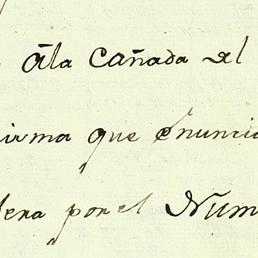 ala Cañada del
irma que enuncia
dena por el Num